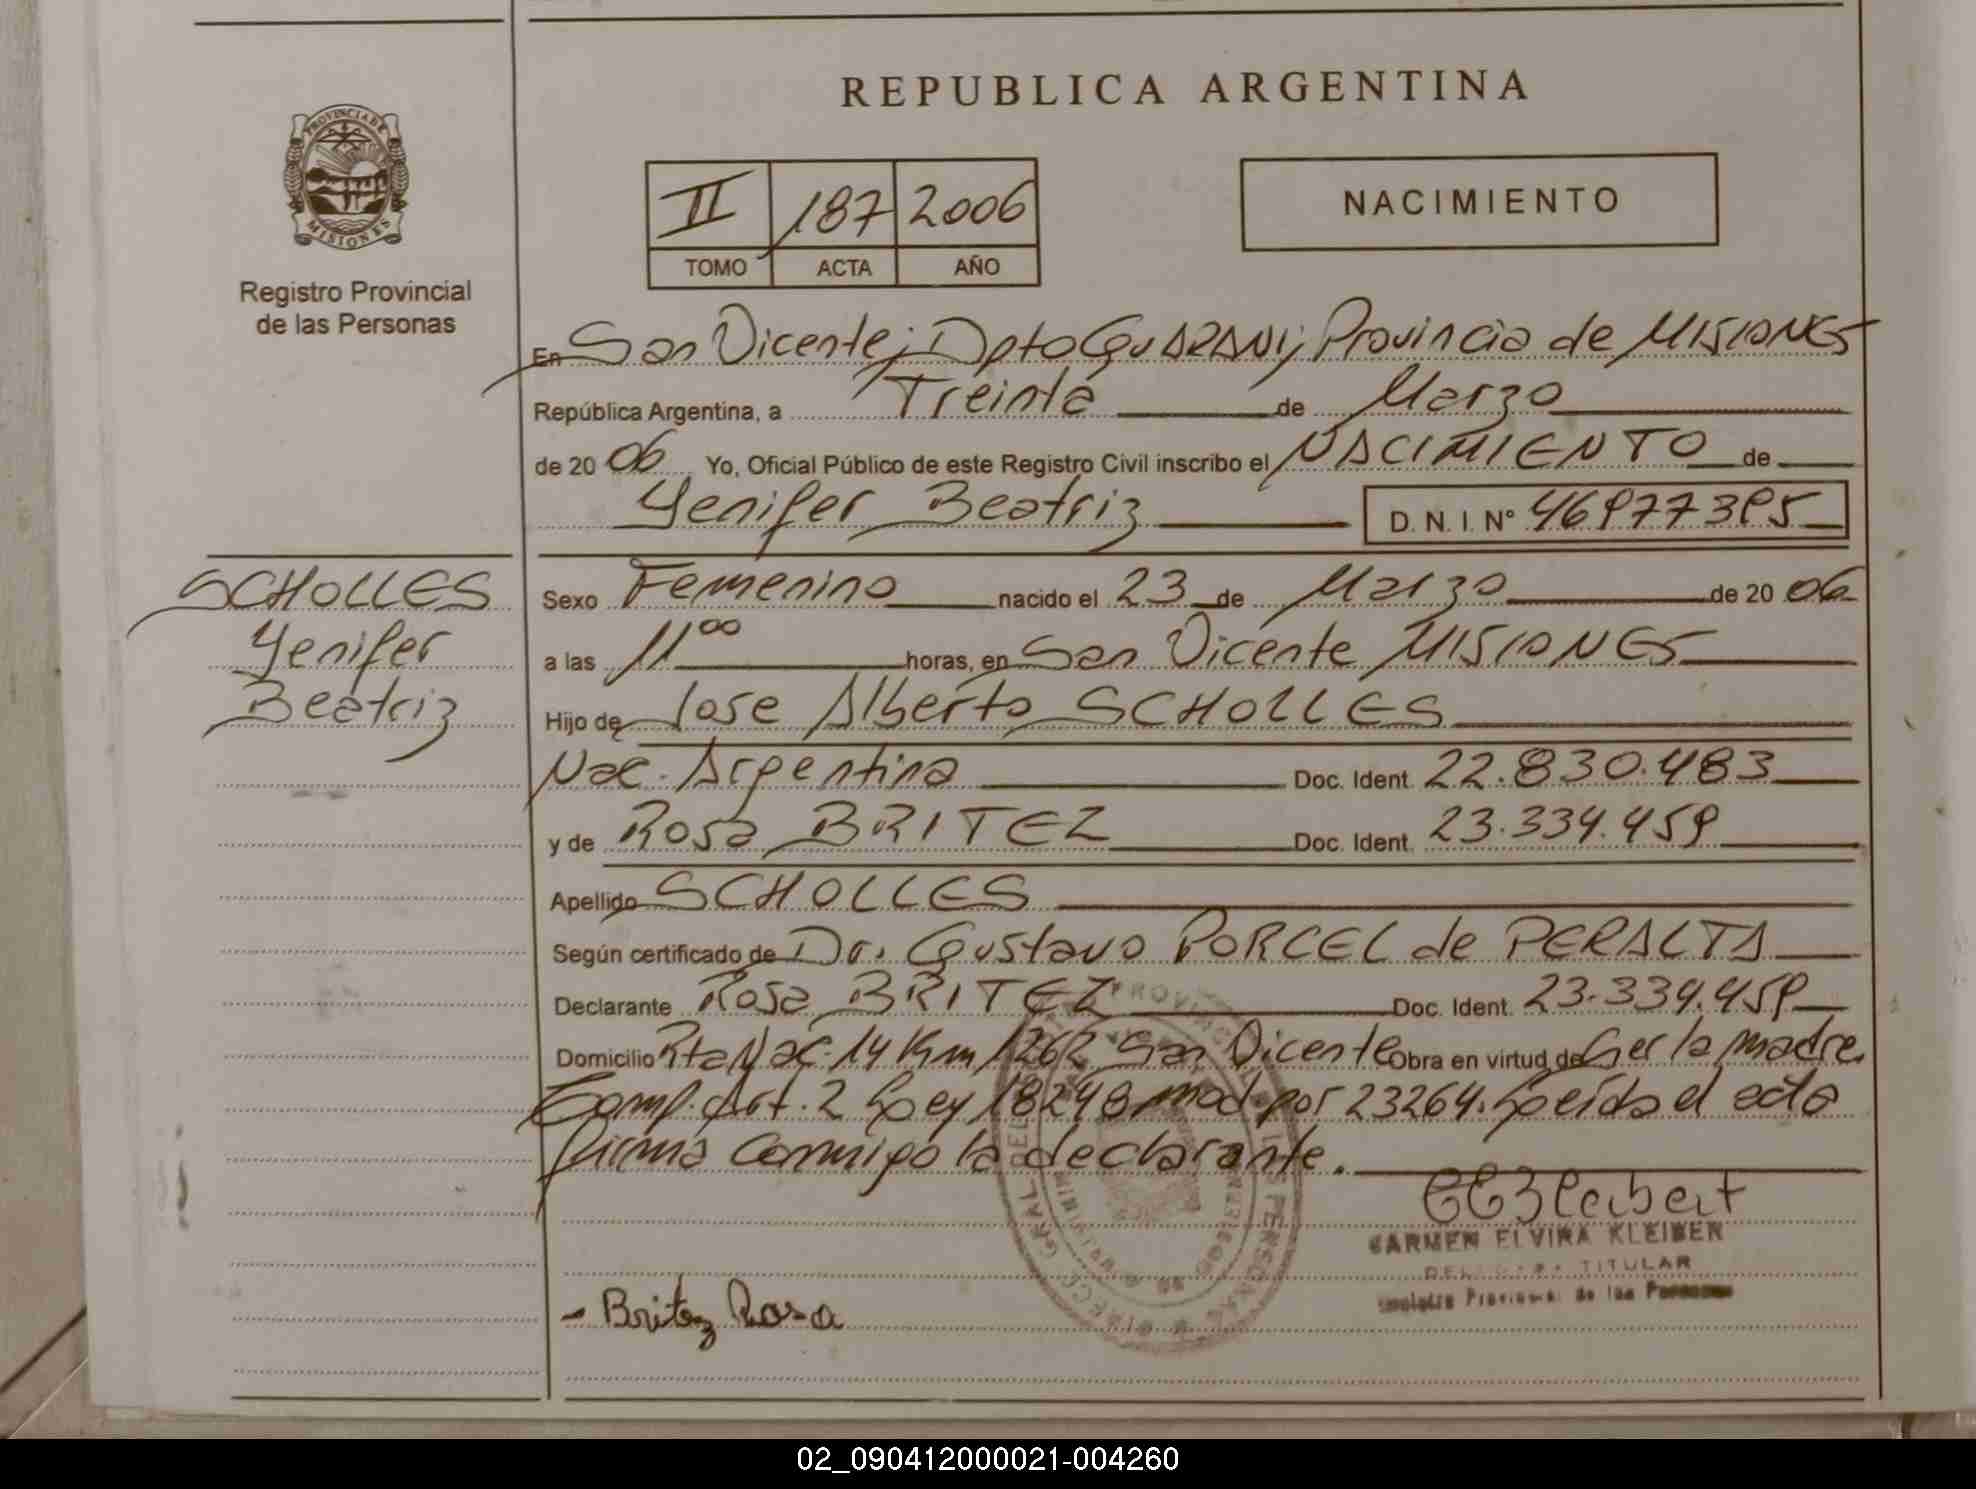 REPUBLICA ARGENTINA
PROVINCIA DE
MISIONES
Registro Provincial
de las Personas
II 187 2006
TOMO ACTA AÑO
NACIMIENTO
En San Vicente; Dpto GUARANI; Provincia de MISIONES
República Argentina, a Treinta de Marzo
de 20 06 Yo, Oficial Público de este Registro Civil inscribo el NACIMIENTO de
Yenifer Beatriz D. N. I. Nº 46977395
SCHOLLES
Yenifer
Beatriz
Sexo Femenino nacido el 23 de Marzo de 20 06
a las 11 00 horas, en San Vicente MISIONES
Hijo de Jose Alberto SCHOLLES
Nac. Argentina Doc. Ident. 22.830.483
y de Rosa BRITEZ Doc. Ident. 23.334.459
Apellido SCHOLLES
Según certificado de Dr. Gustavo PORCEL de PERALTA
Declarante Rosa BRITEZ Doc. Ident. 23.334.459
Domicilio Rta Nac. 14 Km 1262 San Vicente Obra en virtud de Ser la madre.
Comp. Art. 2 Ley 18248 mod por 23264. Leída el acta
firma conmigo la declarante.
CARMEN ELVIRA KLEIBER
TITULAR
Provincial de las Personas
- Britez Rosa
02_090412000021-004260